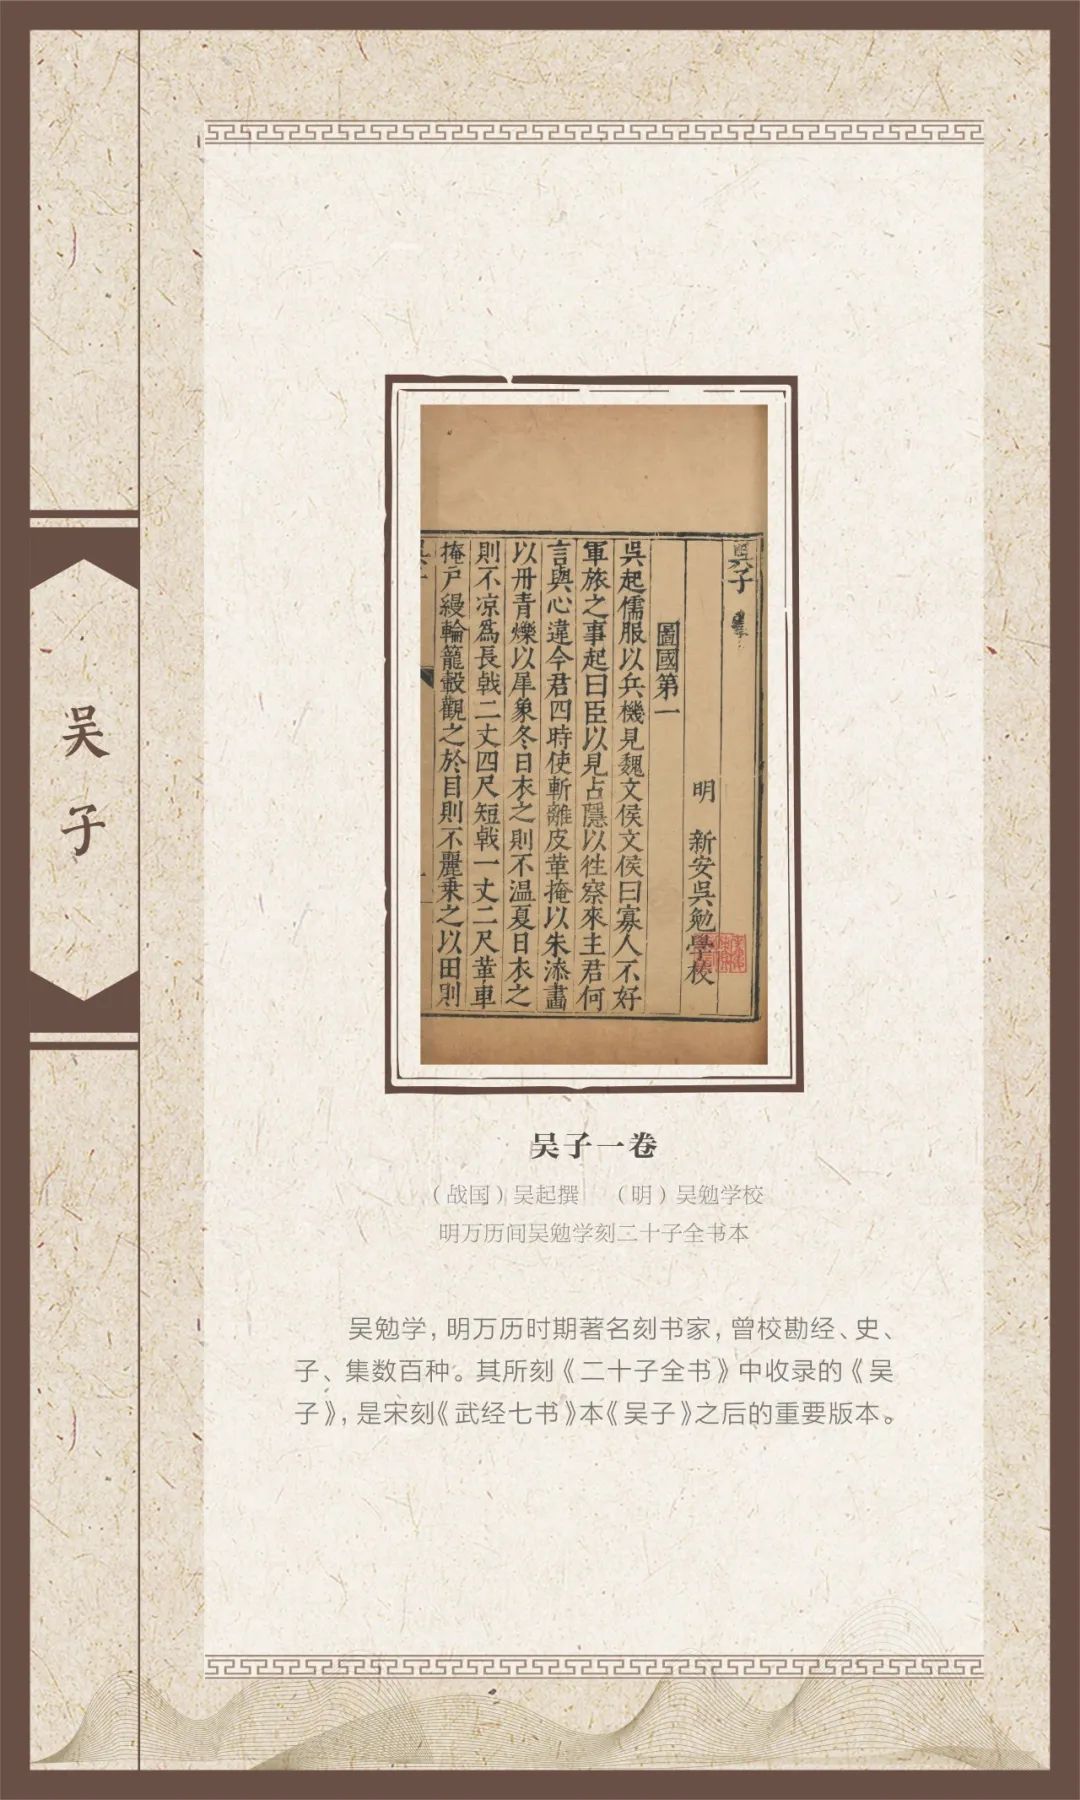 吴子
吳子
明 新安吳勉學校
圖國第一
吳起儒服以兵機見魏文侯文侯曰寡人不好
軍旅之事起曰臣以見占隱以徃察來主君何
言與心違今君四時使斬離皮革掩以朱添畵
以丹青爍以犀象冬日衣之則不温夏日衣之
則不凉爲長戟二丈四尺短戟一丈二尺革車
掩戸縵輪籠轂觀之於目則不麗乗之以田則
吴子一卷
（战国）吴起撰 （明）吴勉学校
明万历间吴勉学刻二十子全书本
吴勉学，明万历时期著名刻书家，曾校勘经、史、
子、集数百种。其所刻《二十子全书》中收录的《吴
子》，是宋刻《武经七书》本《吴子》之后的重要版本。